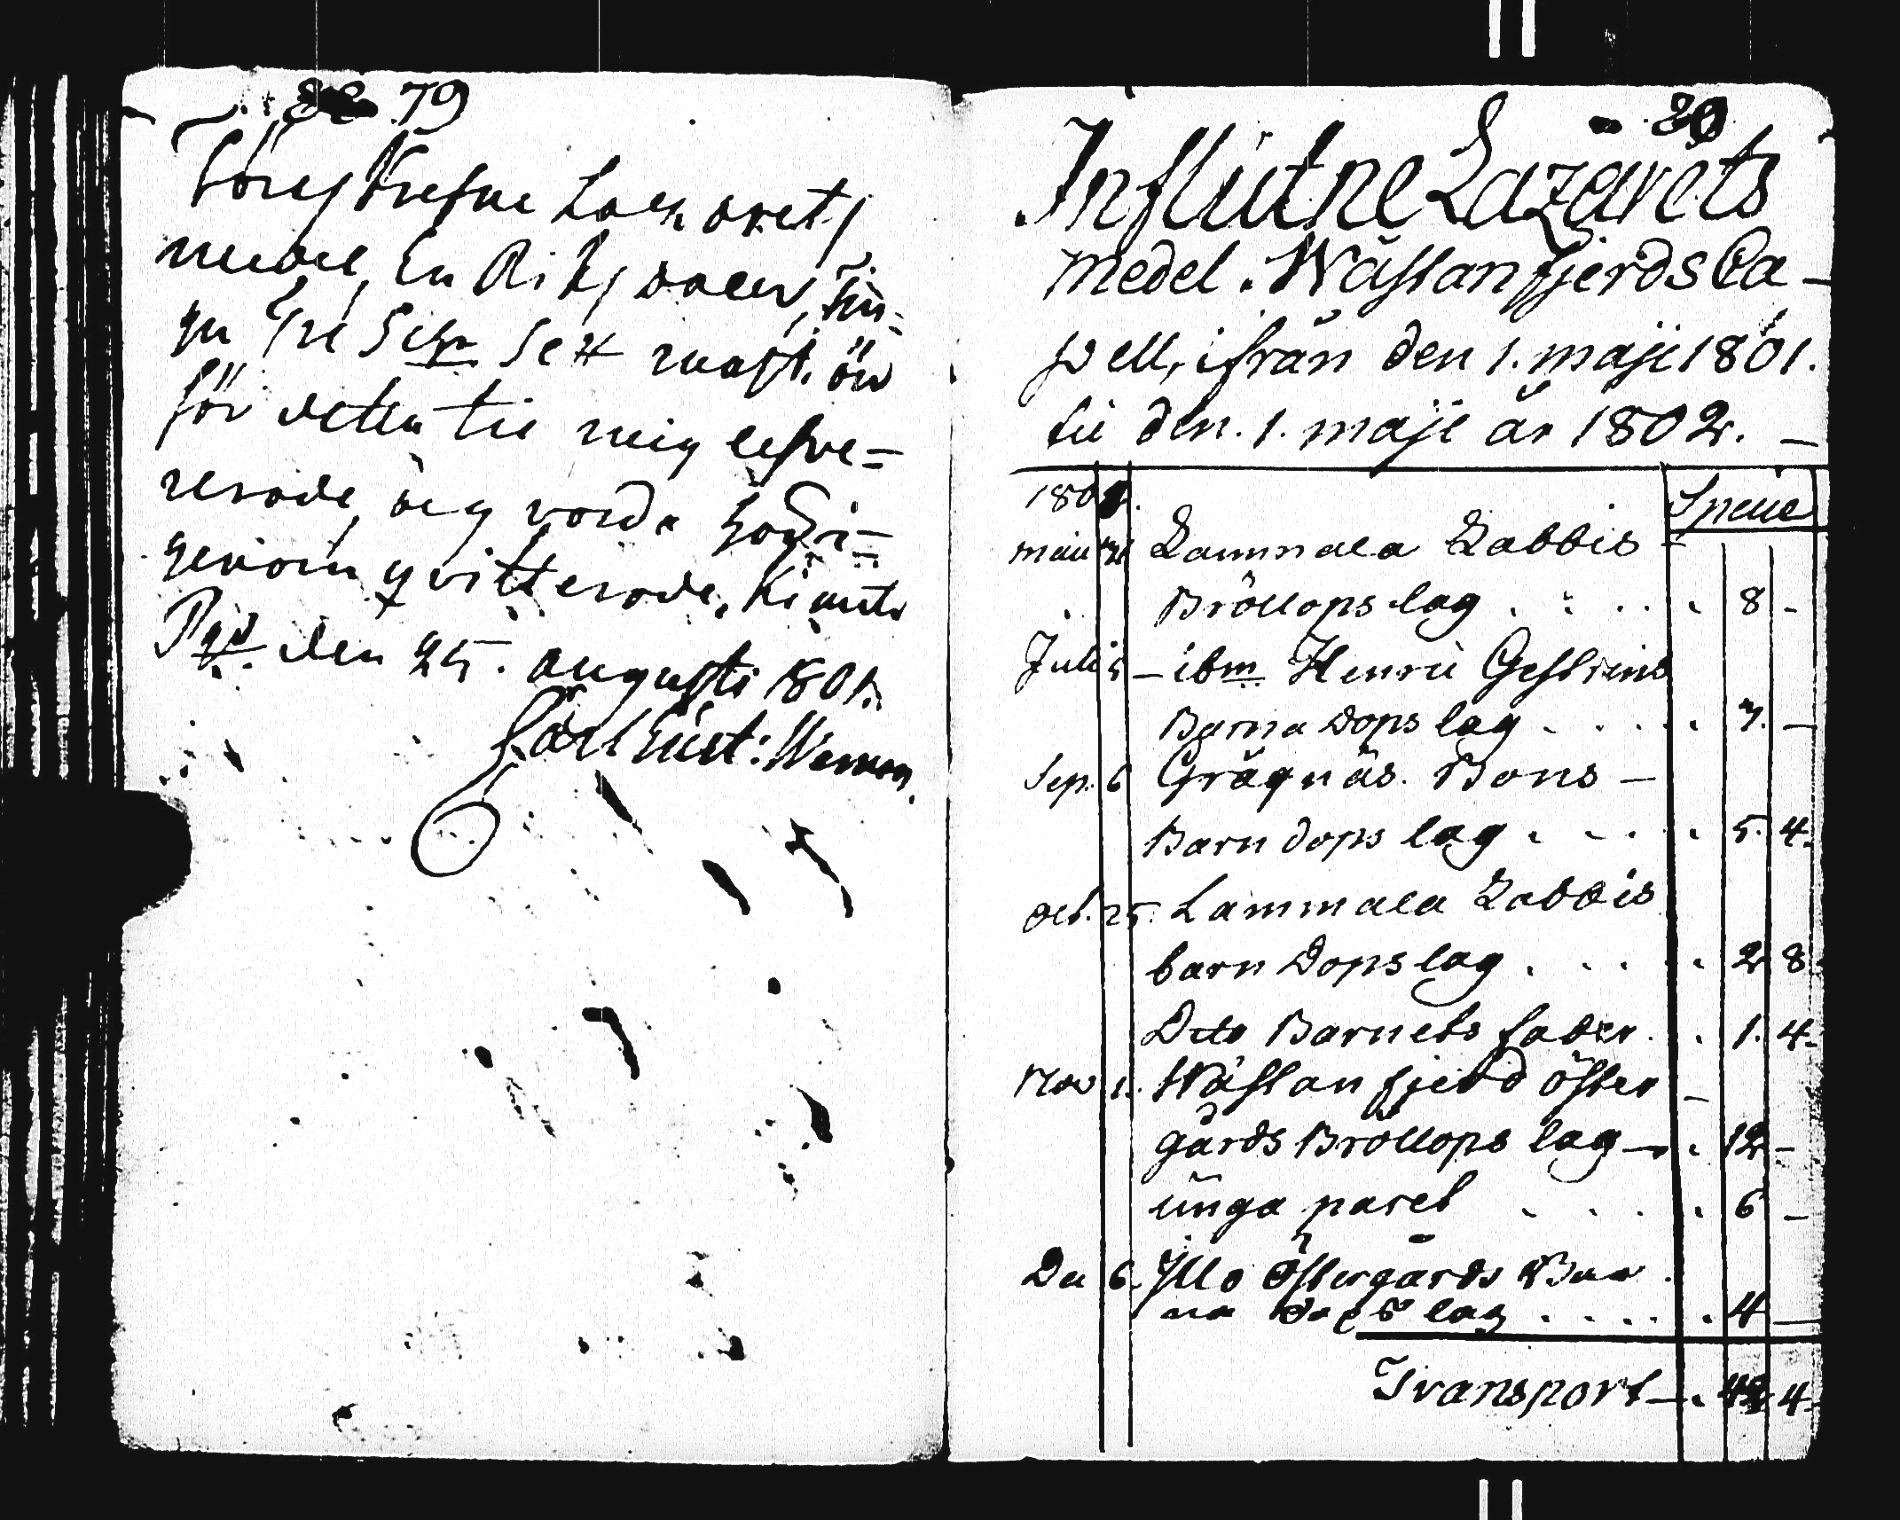 79
Föreskrefne Lazarets
medel, En Riksdaler, Tiu-
gu Tre Sch. Sex r:ns:st. öre
för detta til mig lefve-
rerade, äro vorde häri-
genom qvitterade, Kimito
Pgd. den 25. augusti 1801.
Carl Gust: Weman.
80
Influtne Lazarets
medel. Wästanfjerds Ca-
pell, ifrån den 1. maji 1801.
til den. 1. maji år 1802. —
1801. Speue
maii Lammala Labbis
Bröllops lag . . . . . 8 -
Juli 5 - ibm Henric Gestrins
Barna Dops lag . . . . 7. —
Sep. 6 Grågnäs. Bons —
Barn dops lag . . . . 5. 4.
Oct. 25. Lammala Labbis
barn Dops lag . . . . 2 8
Dito Barnets fader . . 1. 4.
Nov 1. Wästanfjerd öster -
gårds Bröllops lag — . 12 -
unga paret . . . . 6 -
De 6. Illo Östergårds Bar
na Dops lag . . . . . 4 —
Transport — . 4.